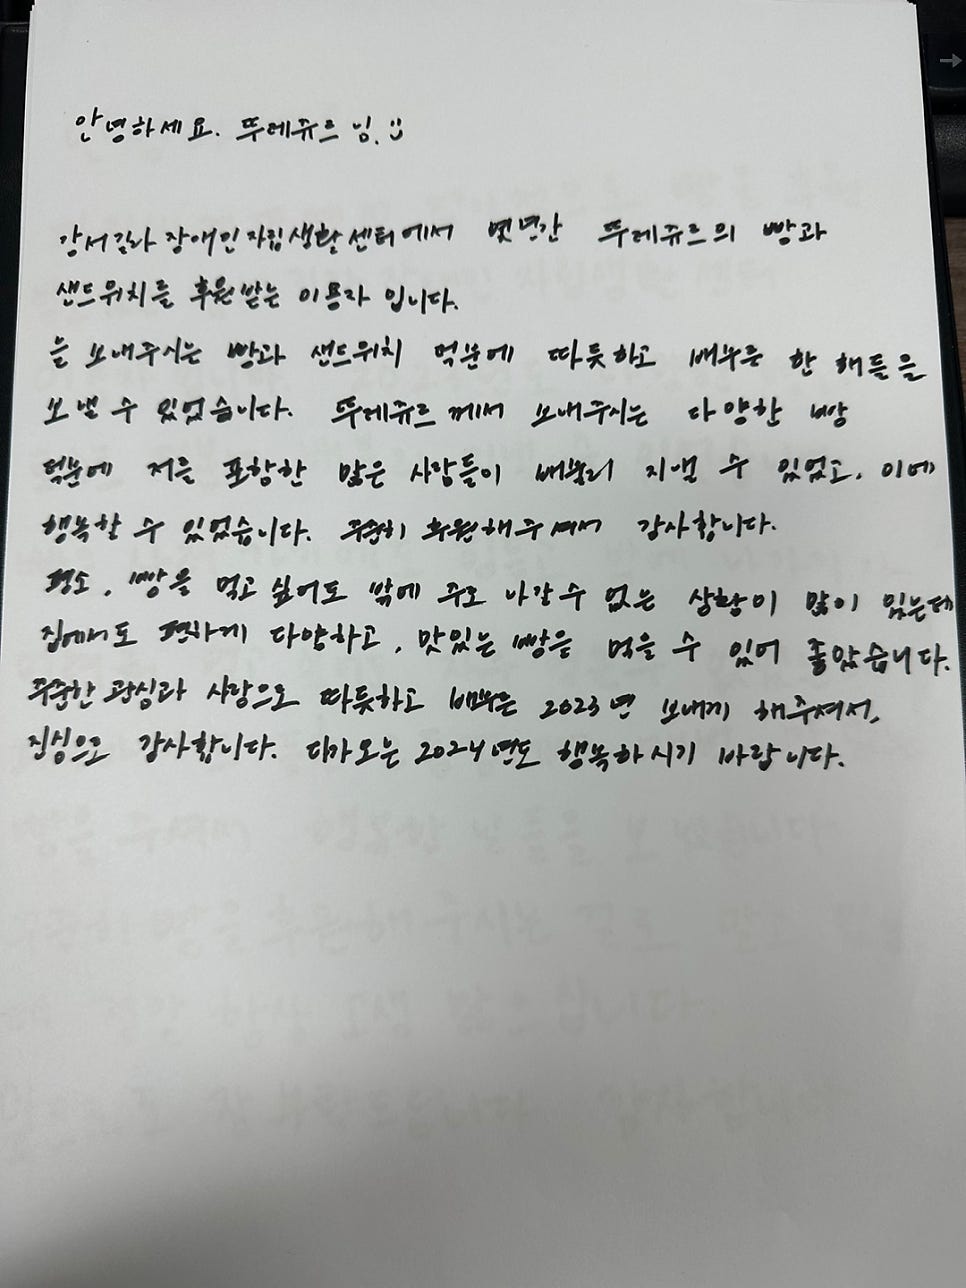 안녕하세요. 뚜레쥬르 님. :)
강서길라 장애인자립생활센터에서 몇년간 뚜레쥬르의 빵과
샌드위치를 후원받는 이용자 입니다.
늘 보내주시는 빵과 샌드위치 덕분에 따듯하고 배부른 한 해들을
보낼 수 있었습니다. 뚜레쥬르께서 보내주시는 다양한 빵
덕분에 저를 포함한 많은 사람들이 배불리 지낼 수 있었고, 이에
행복할 수 있었습니다. 꾸준히 후원해주셔서 감사합니다.
평소, 빵을 먹고 싶어도 밖에 주로 나갈 수 없는 상황이 많이 있는데
집에서도 편하게 다양하고, 맛있는 빵을 먹을 수 있어 좋았습니다.
꾸준한 관심과 사랑으로 따듯하고 배부른 2023년 보내게 해주셔서,
진심으로 감사합니다. 다가오는 2024년도 행복하시기 바랍니다.